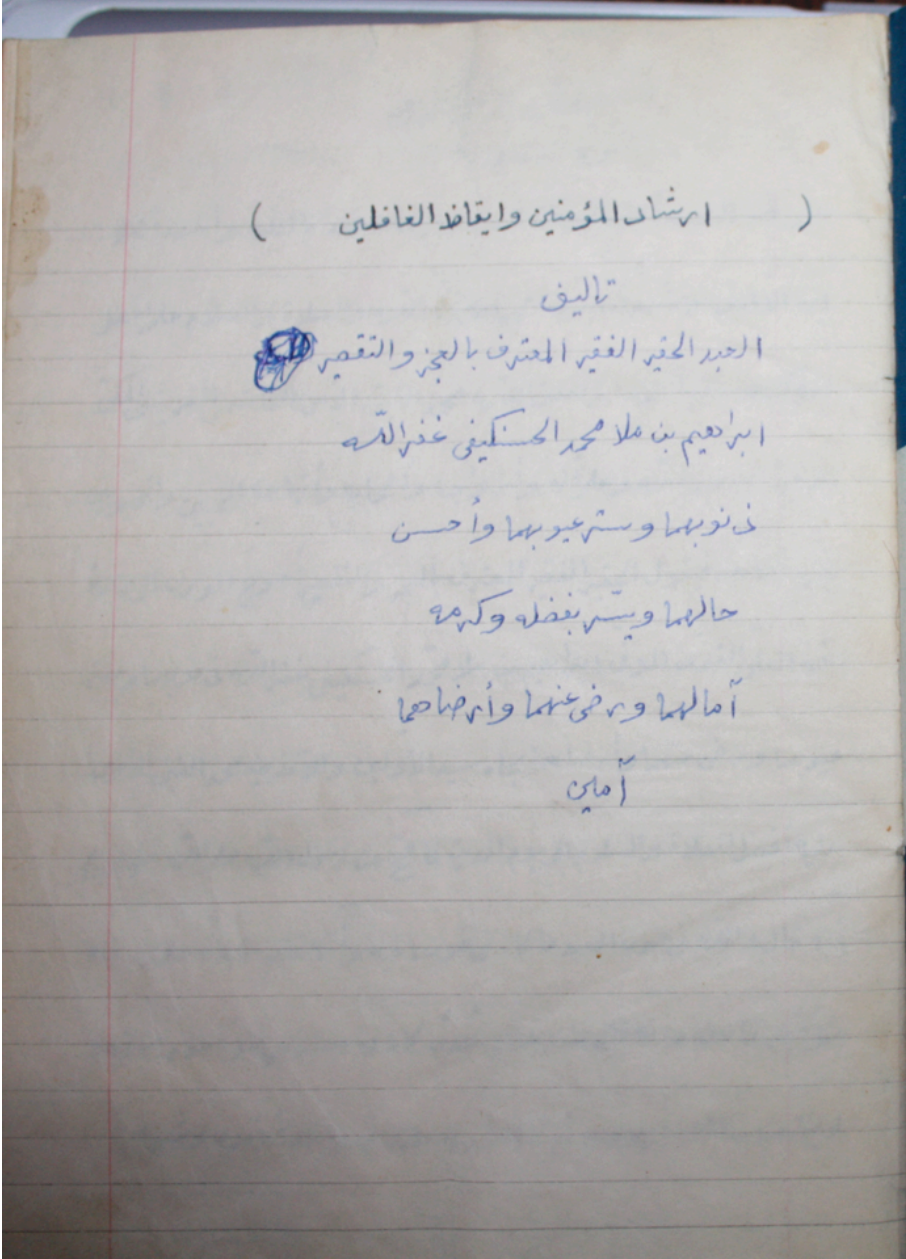 ( ارشاد المؤمنين وايقاظ الغافلين )
تاليف
العبد الحقير الفقير المعترف بالعجز والتقصير
ابراهيم بن ملا محمد الحسنكيفى غفر الله
ذنوبهما وستر عيوبهما وأحسن
حالهما ويسّر بفضله وكرمه
آمالهما ورضى عنهما وأرضاهما
آمين